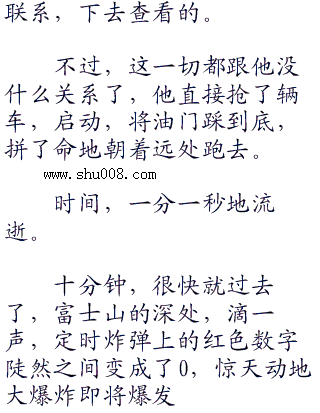 联系，下去查看的。
不过，这一切都跟他没
什么关系了，他直接抢了辆
车，启动，将油门踩到底，
拼了命地朝着远处跑去。
www.shu008.com
时间，一分一秒地流
逝。
十分钟，很快就过去
了，富士山的深处，滴一
声，定时炸弹上的红色数字
陡然之间变成了0，惊天动地
大爆炸即将爆发